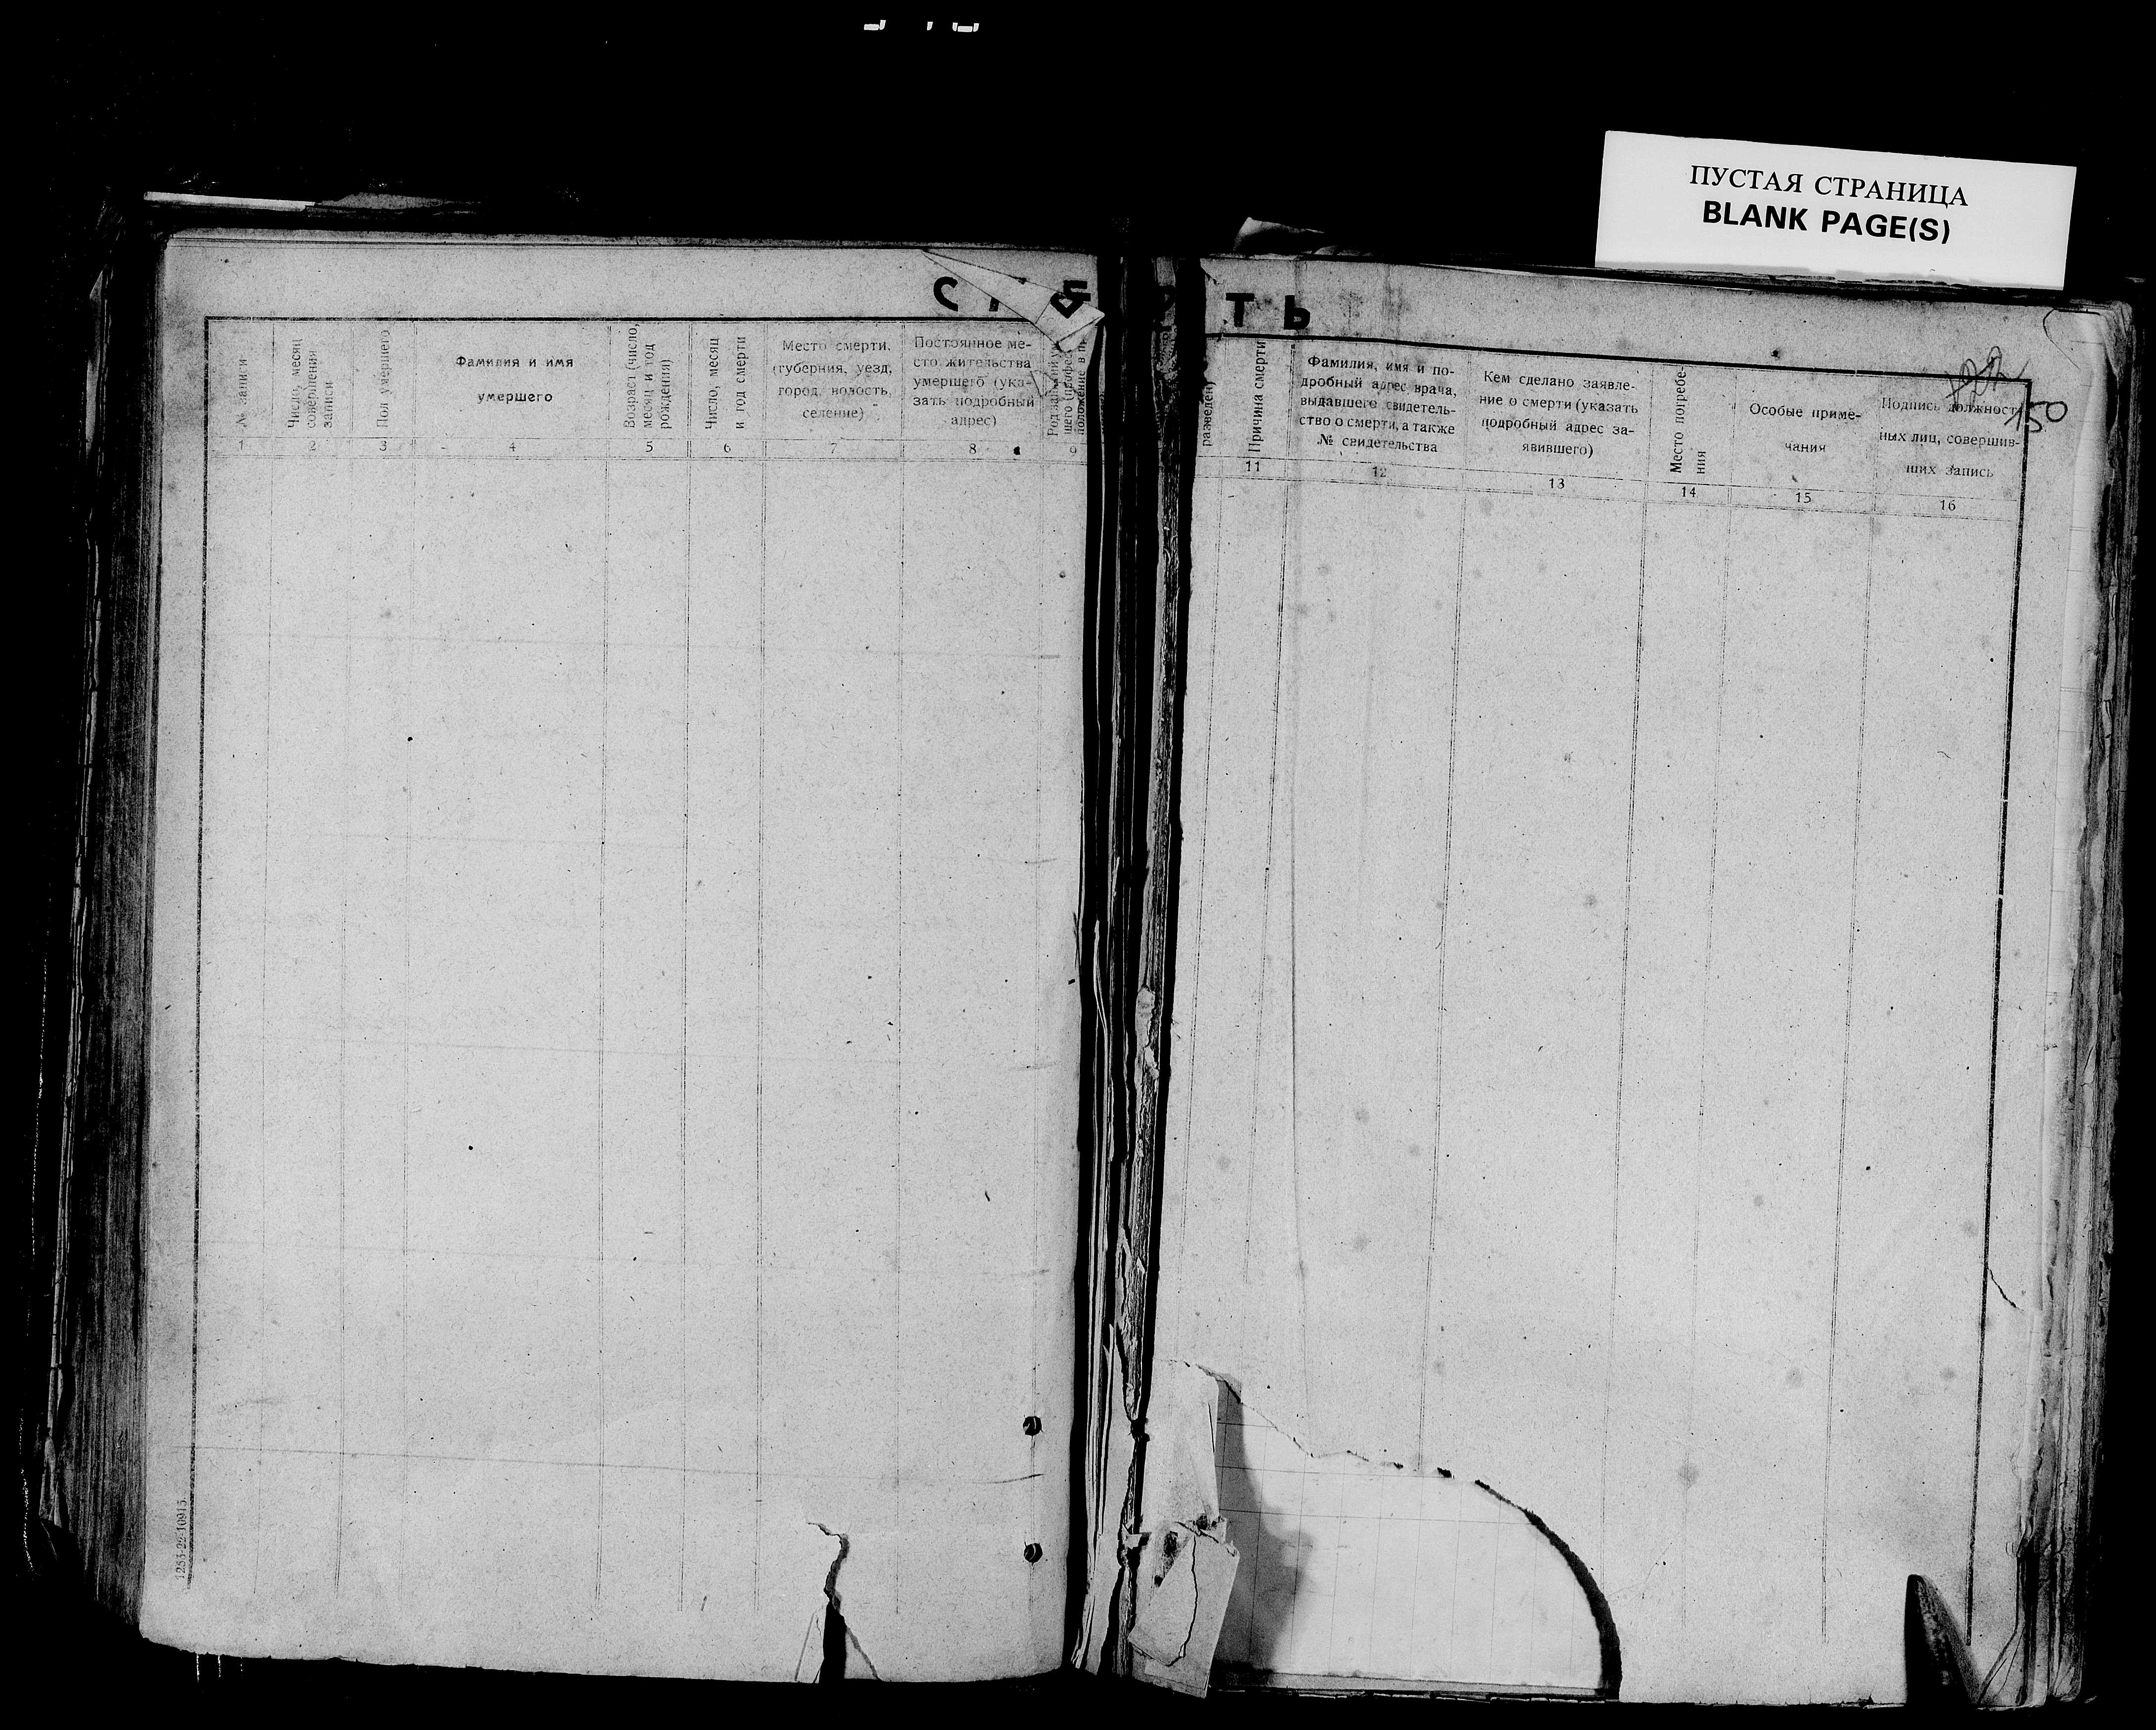 ПУСТАЯ СТРАНИЦА
BLANK PAGE(S)
ТЬ
№ записи
Число, месяц
совершения
записи
Пол умершего
Фамилия и имя
умершего
Возраст (число,
месяц и год
рождения)
Число, месяц
и год смерти
Место смерти.
(губерния, уезд,
город, волость,
селение)
Постоянное ме-
сто жительства
умершего (ука-
зать подробный
адрес)
1
2
3
4
5
6
7
8
9
разведен)
Причина смерти
Фамилия, имя и по-
дробный адрес врача,
выдавшего свидетель-
ство о смерти, а также
№ свидетельства
Кем сделано заявле-
ние о смерти (указать
подробный адрес за-
явившего)
Место погребе-
ния
Особые приме-
чания
Подпись должност-
ных лиц, совершив-
ших запись
11
12
13
14
15
16
150
1253-22-10915.